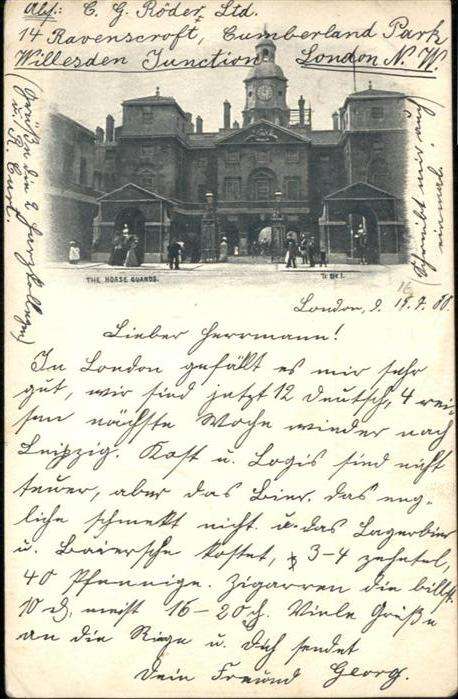 Abs: C. G. Röder, Ltd.
14 Ravenscroft, Cumberland Park
Willesden Junction London N. W.
(Grüßen die 2
u. R. Curt.
(Schreibt mir auch
einmal.)
THE HORSE GUARDS.
London, d. 19.7.00.
16
Lieber Herrmann!
In London gefällt es mir sehr
gut, wir sind jetzt 12 Deutsch, 4 rei-
sen nächste Woche wieder nach
Leipzig. Kost u. Logis sind nicht
teuer, aber das Bier. das eng-
liche schmekt nicht u. das Lagerbier
u. Baiersche kostet, 3–4 zehntel,
40 Pfennige. Zigarren die billgst.
10 d, meist 16–20 d. Viele Grüße
an die Riege u. Dich sendet
Dein Freund Georg.